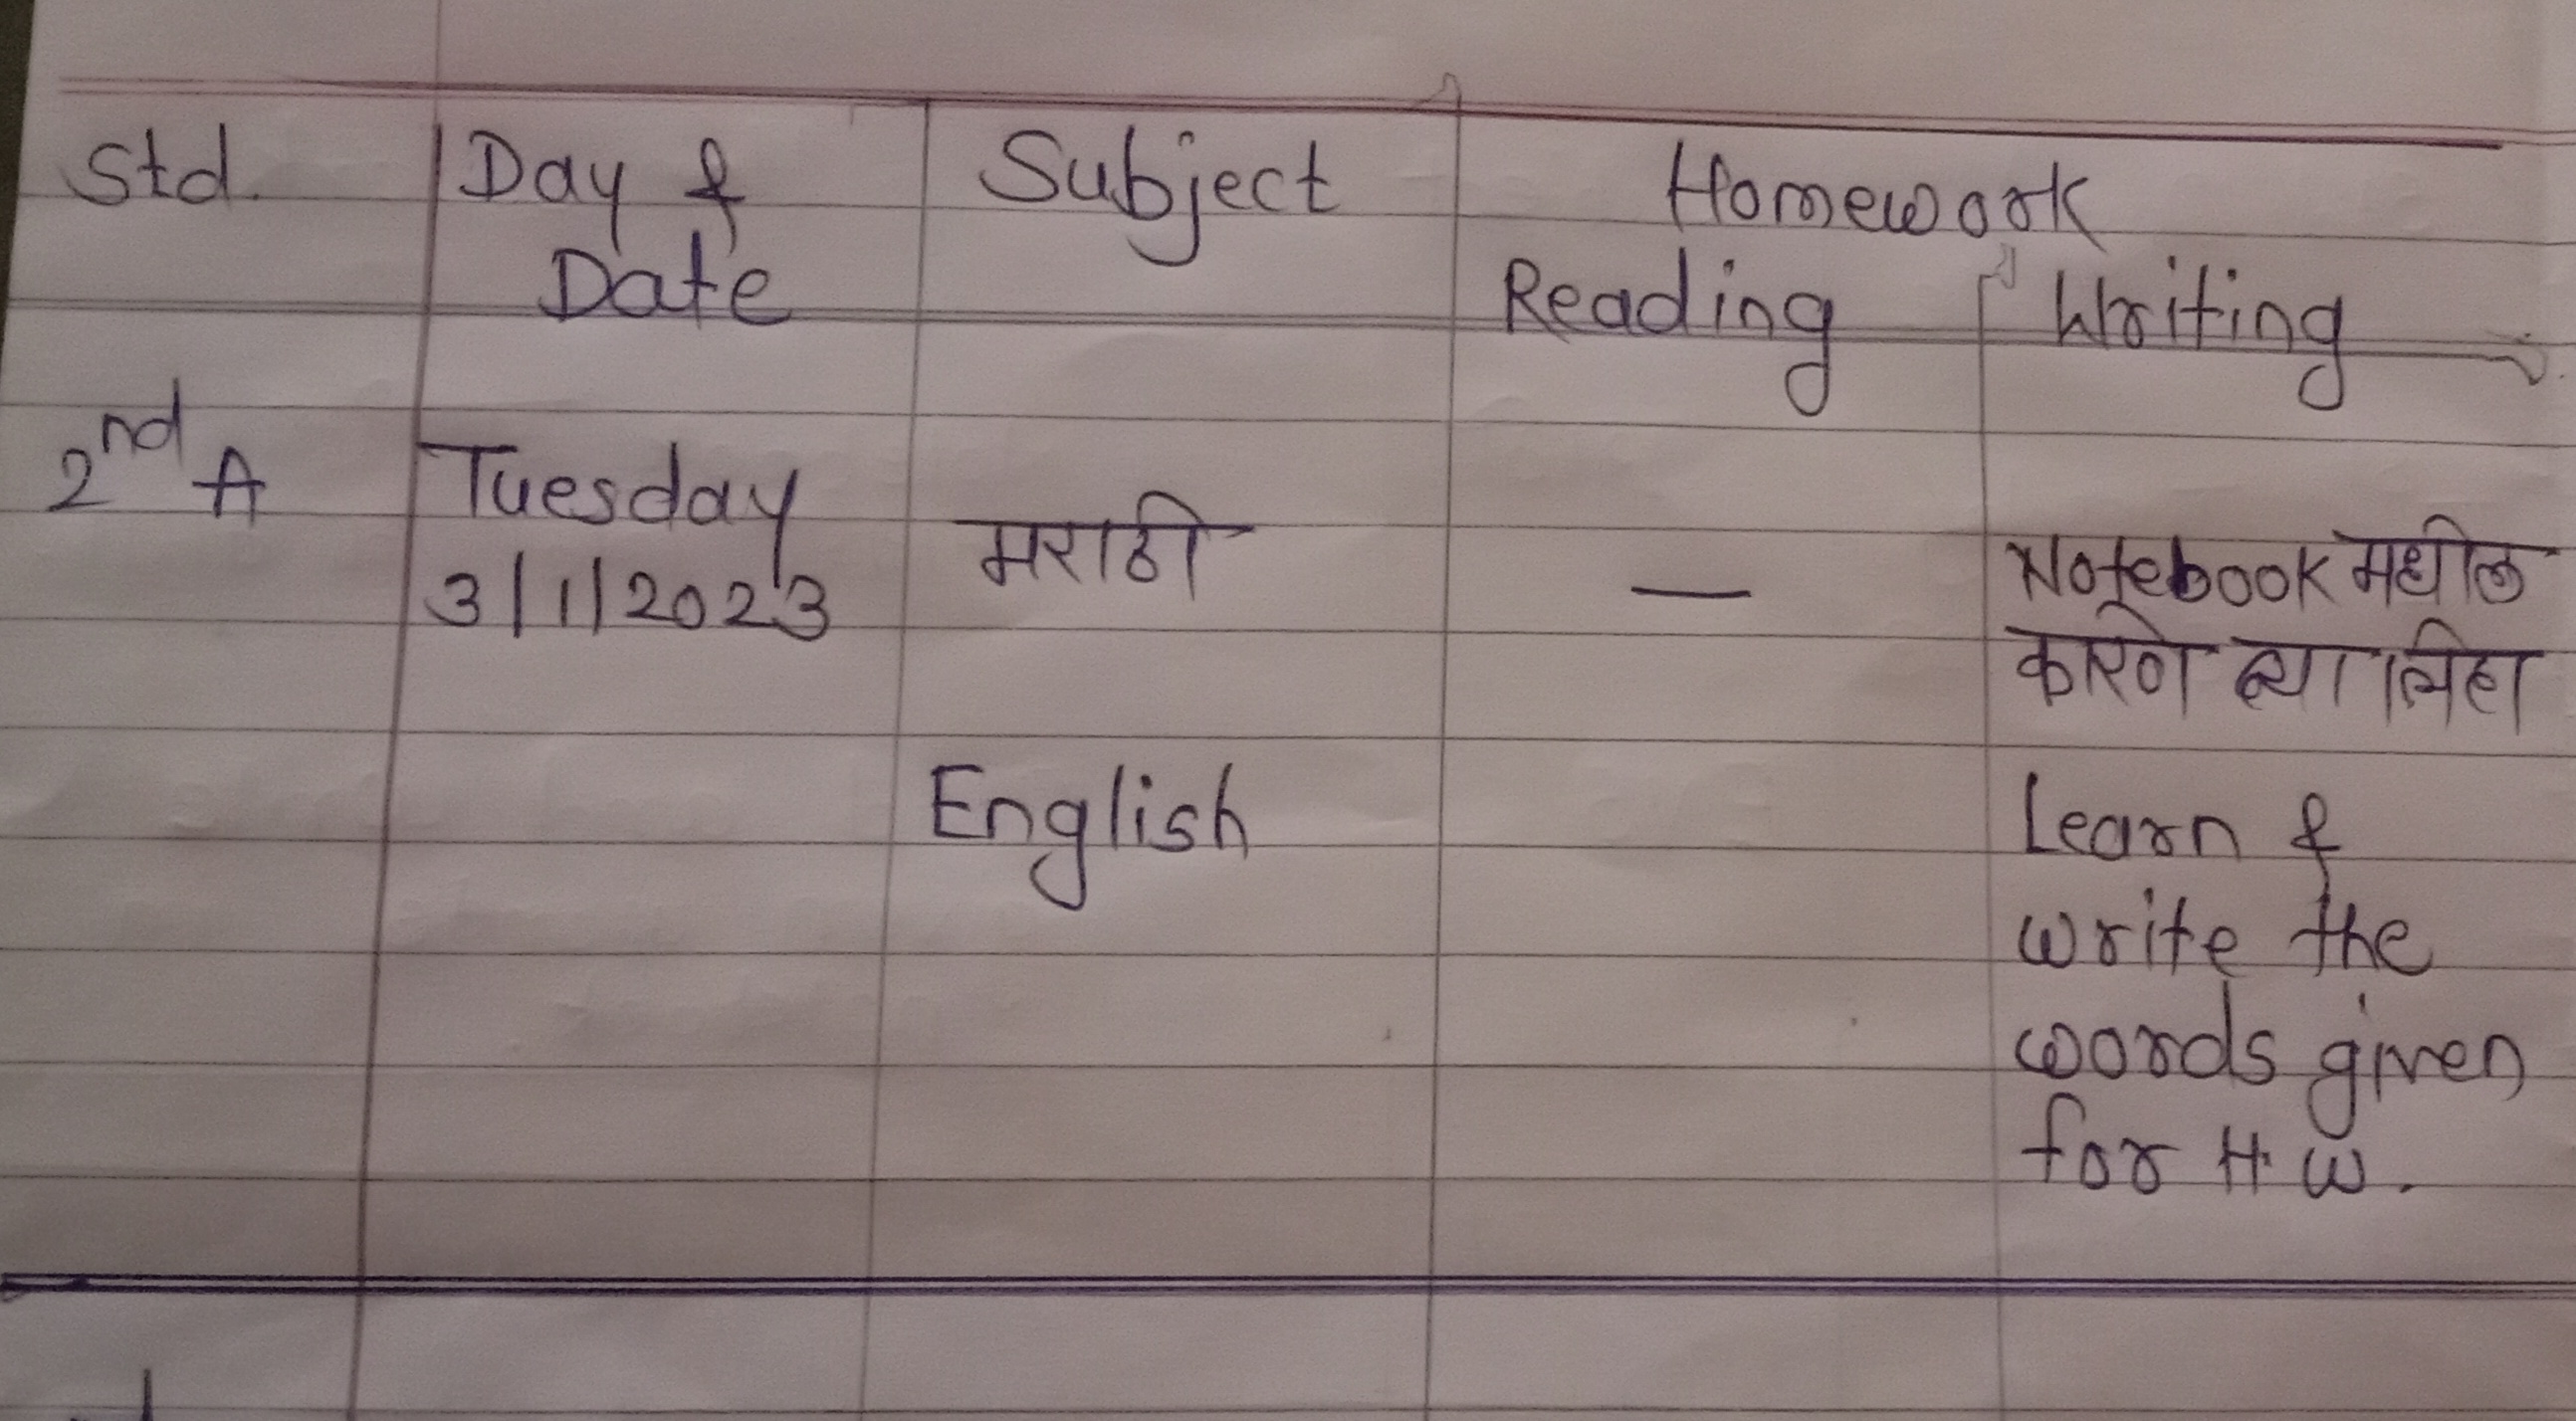 Std. Day & Subject Homework
Date Reading Writing
2nd A Tuesday मराठी — Notebook मधील
3/1/2023 कारणे द्या लिहा
English Learn &
write the
words given
for H.W.